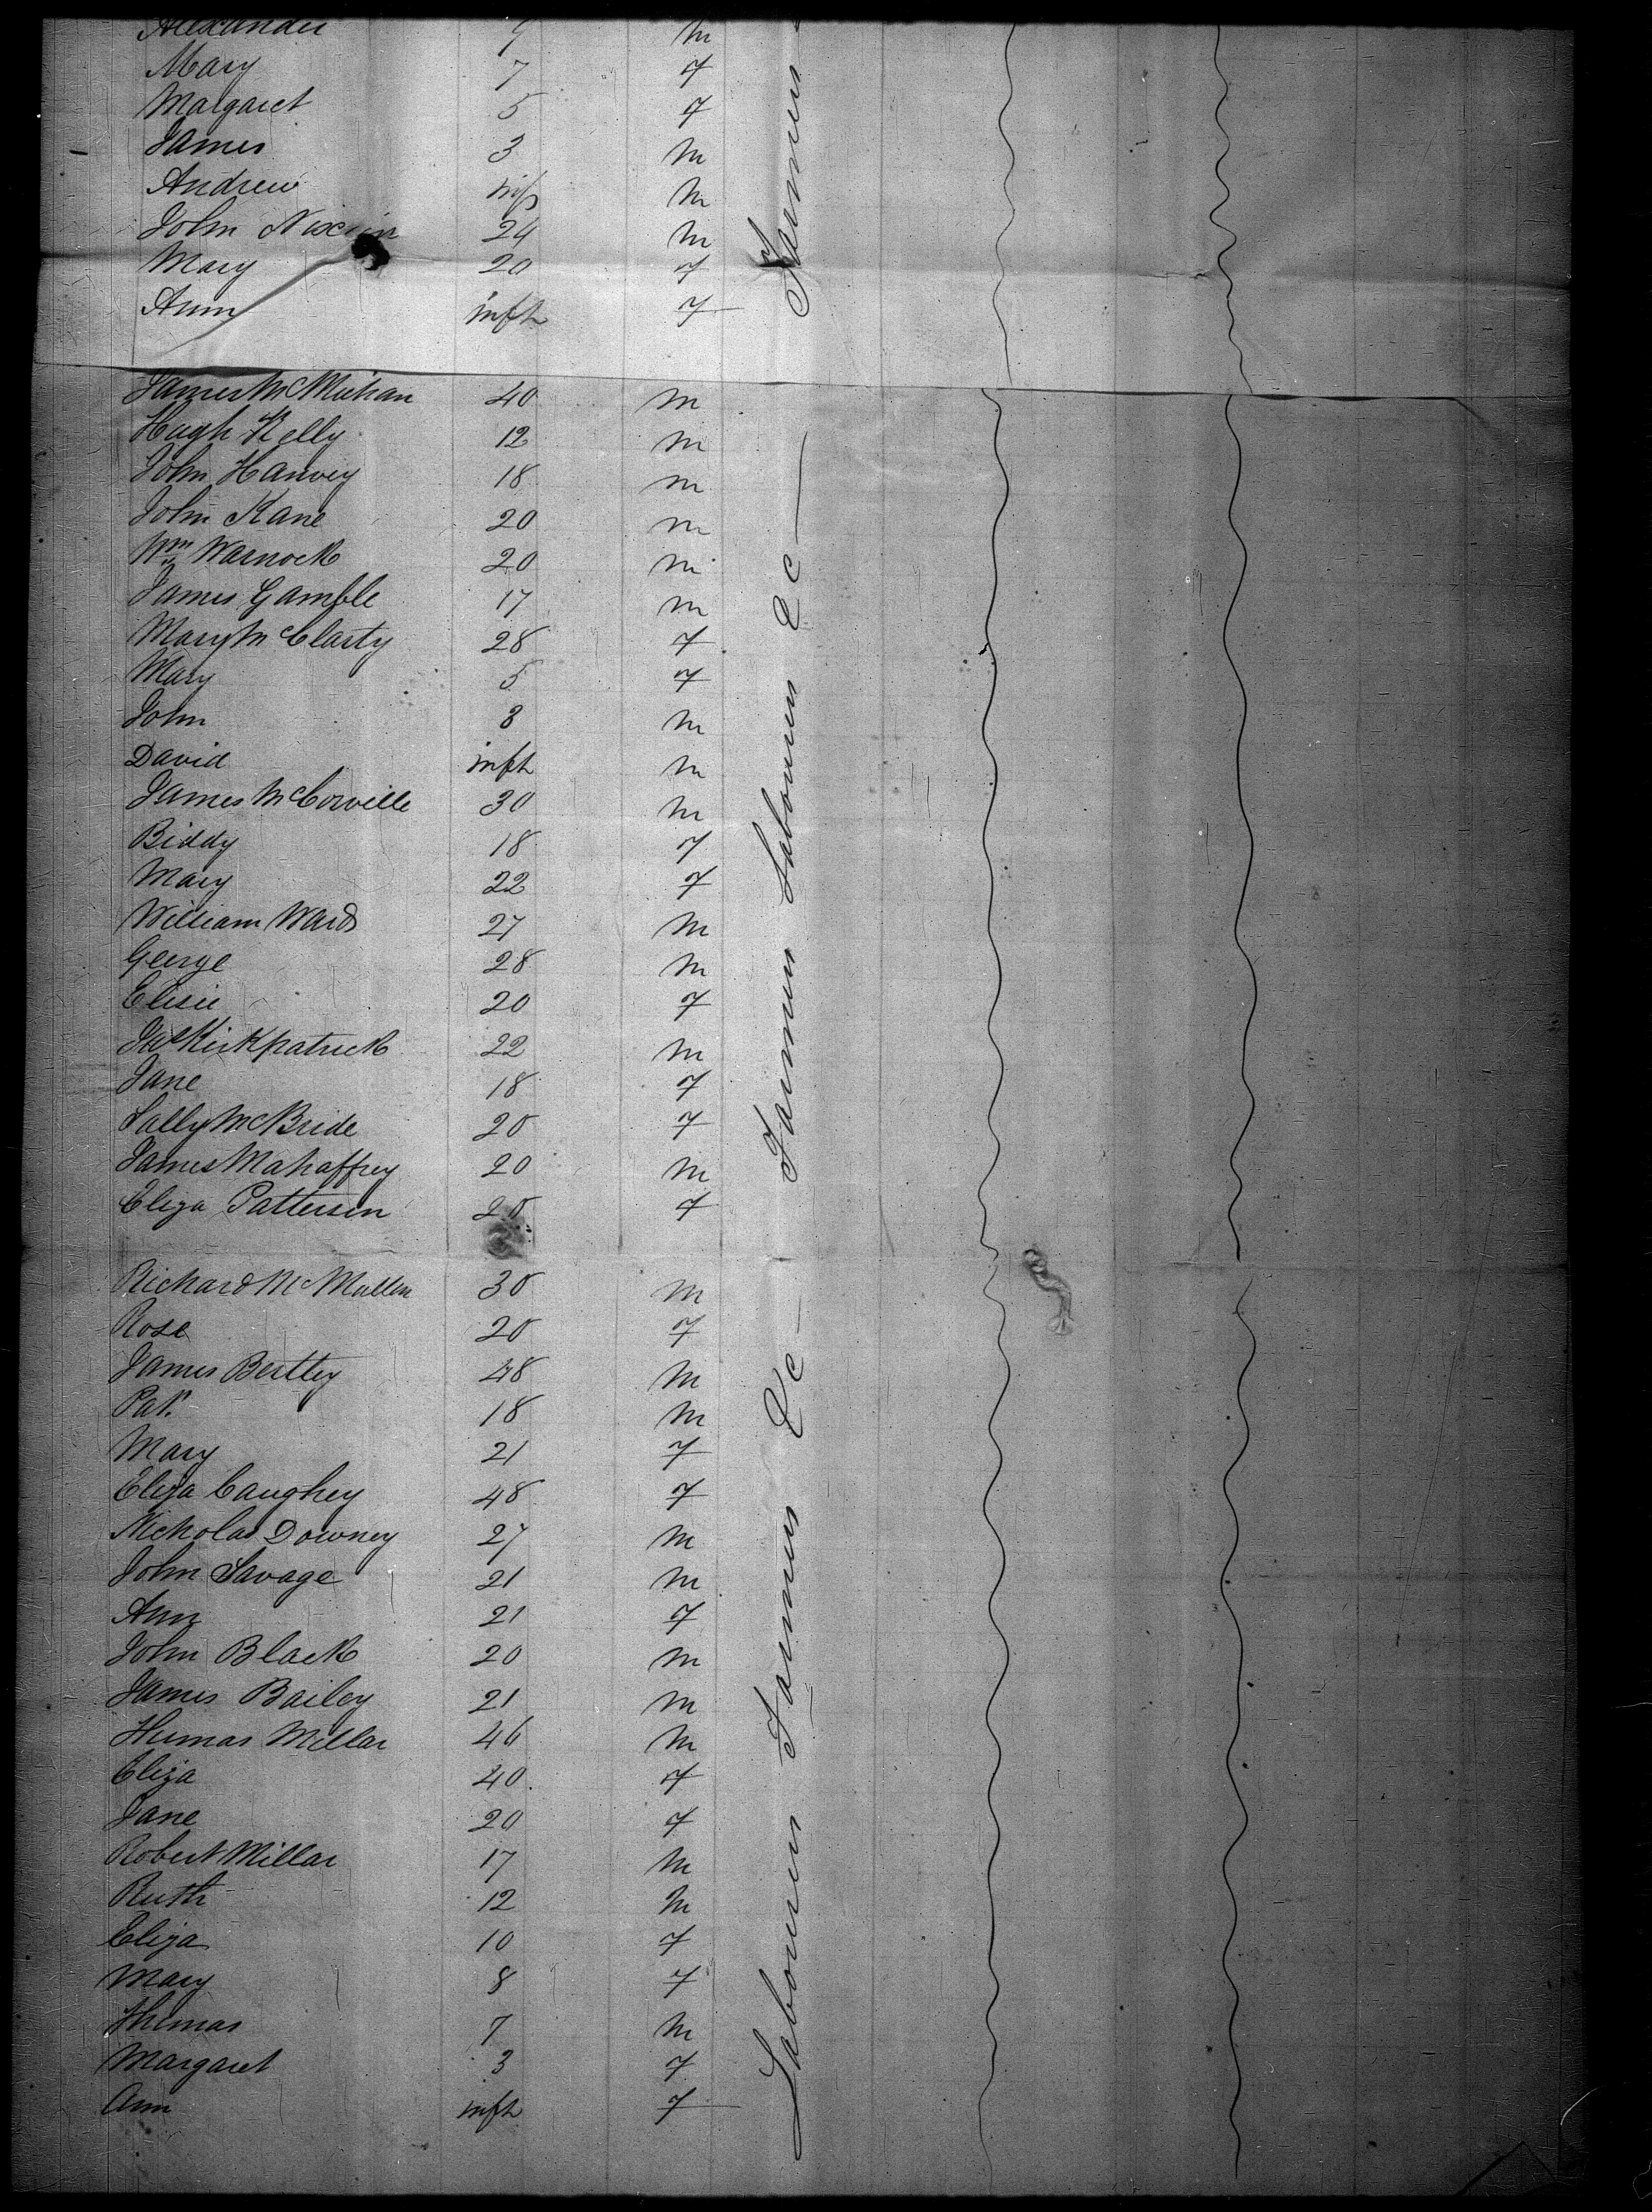 Alexander 9 m
Mary 7 f
Margaret 5 f
James 3 m
Andrew inf m
John Nixon 24 m
Mary 20 f
Ann inft f
Farmers
James McMichan 40 m
Hugh Kelly 12 m
John Hanvey 18 m
John Kane 20 m
Wm Warnock 20 m
James Gamble 17 m
Mary McClarty 28 f
Mary 5 f
John 3 m
David inft m
James McCorville 30 m
Biddy 18 f
Mary 22 f
William Ward 27 m
George 28 m
Elisie 20 f
Jas Kirkpatrick 22 m
Jane 18 f
Sally McBride 20 f
James Mahaffrey 20 m
Eliza Patterson 20 f
Farmers Labourers &c
Richard McMullen 30 m
Rose 20 f
James Bertley 48 m
Pat. 18 m
Mary 21 f
Eliza Caughey 48 f
Nicholas Downey 27 m
John Savage 21 m
Ann 21 f
John Black 20 m
James Bailey 21 m
Thomas Millar 46 m
Eliza 40 f
Jane 20 f
Robert Millar 17 m
Ruth 12 m
Eliza 10 f
Mary 8 f
Thomas 7 m
Margaret 3 f
Ann inft f
Labourers Farmers &c